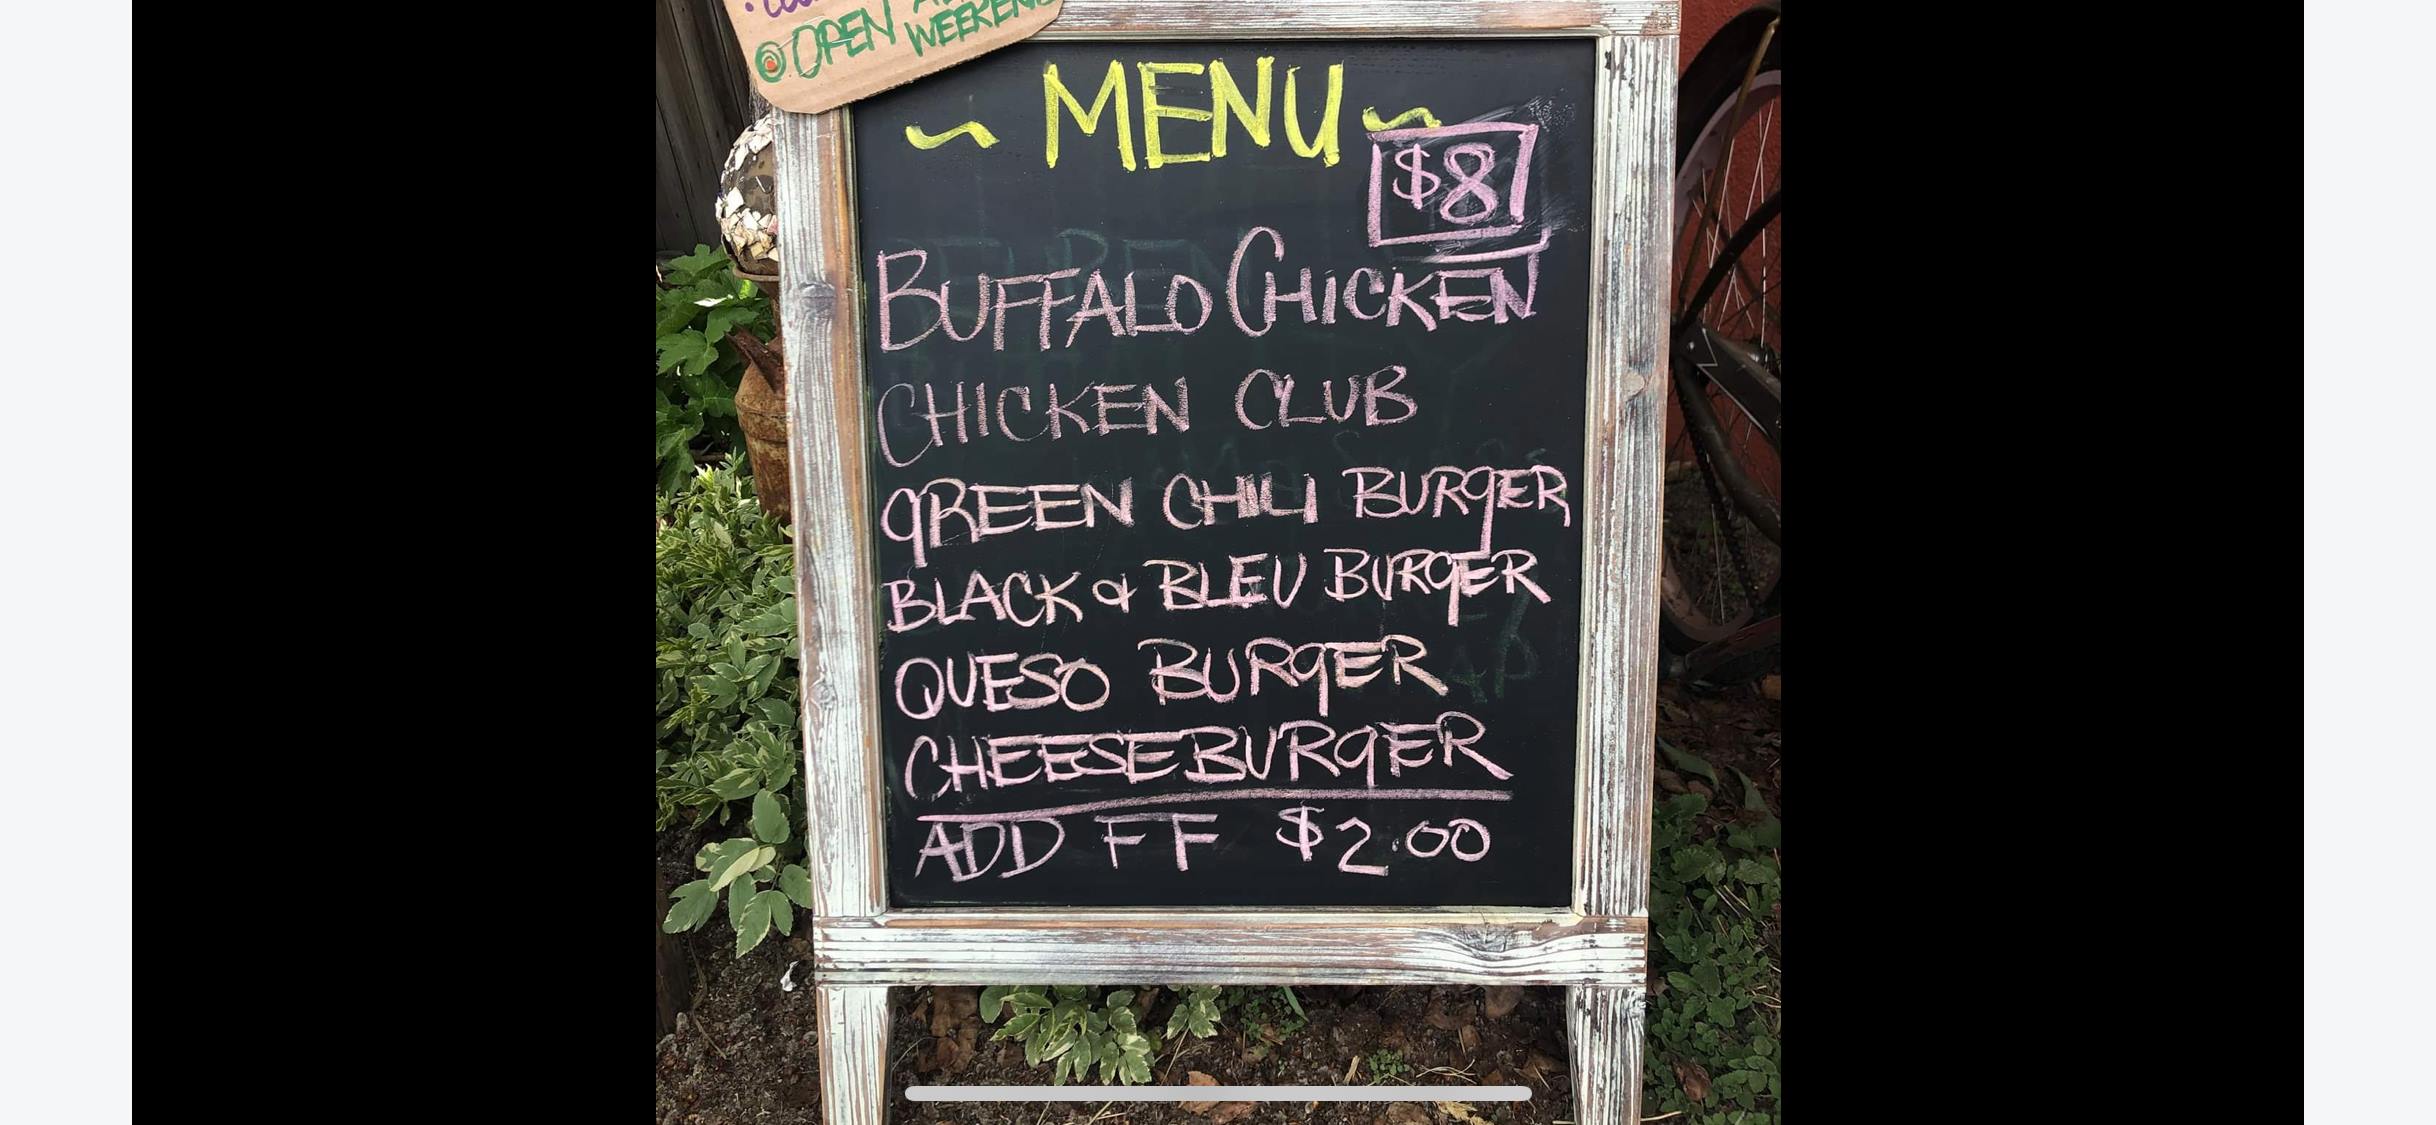 OPEN
WEEKEND
~ MENU ~
$8
BUFFALO CHICKEN
CHICKEN CLUB
GREEN CHILI BURGER
BLACK & BLEU BURGER
QUESO BURGER
CHEESEBURGER
ADD FF $2.00